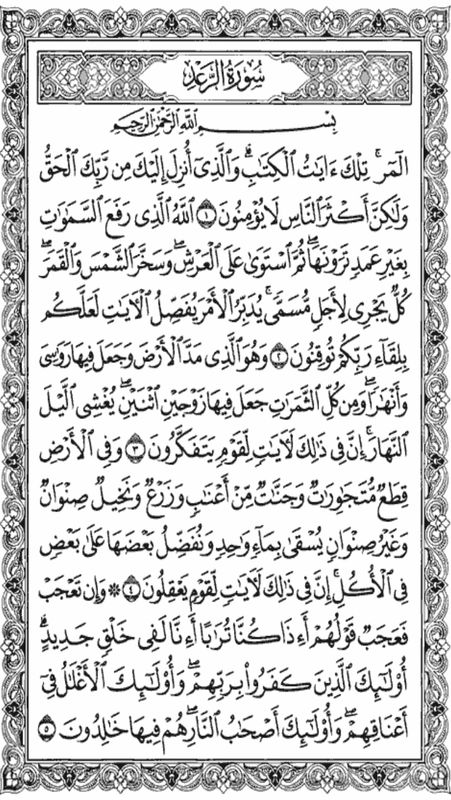 سُورَةُ الرَّعۡدِ
بِسۡمِ ٱللَّهِ ٱلرَّحۡمَٰنِ ٱلرَّحِيمِ
الٓمٓرۚ تِلۡكَ ءَايَٰتُ ٱلۡكِتَٰبِۗ وَٱلَّذِيٓ أُنزِلَ إِلَيۡكَ مِن رَّبِّكَ ٱلۡحَقُّ
وَلَٰكِنَّ أَكۡثَرَ ٱلنَّاسِ لَا يُؤۡمِنُونَ ١ ٱللَّهُ ٱلَّذِي رَفَعَ ٱلسَّمَٰوَٰتِ
بِغَيۡرِ عَمَدٖ تَرَوۡنَهَاۖ ثُمَّ ٱسۡتَوَىٰ عَلَى ٱلۡعَرۡشِۖ وَسَخَّرَ ٱلشَّمۡسَ وَٱلۡقَمَرَۖ
كُلّٞ يَجۡرِي لِأَجَلٖ مُّسَمّٗىۚ يُدَبِّرُ ٱلۡأَمۡرَ يُفَصِّلُ ٱلۡأٓيَٰتِ لَعَلَّكُم
بِلِقَآءِ رَبِّكُمۡ تُوقِنُونَ ٢ وَهُوَ ٱلَّذِي مَدَّ ٱلۡأَرۡضَ وَجَعَلَ فِيهَا رَوَٰسِيَ
وَأَنۡهَٰرٗاۖ وَمِن كُلِّ ٱلثَّمَرَٰتِ جَعَلَ فِيهَا زَوۡجَيۡنِ ٱثۡنَيۡنِۖ يُغۡشِي ٱلَّيۡلَ
ٱلنَّهَارَۚ إِنَّ فِي ذَٰلِكَ لَأٓيَٰتٖ لِّقَوۡمٖ يَتَفَكَّرُونَ ٣ وَفِي ٱلۡأَرۡضِ
قِطَعٞ مُّتَجَٰوِرَٰتٞ وَجَنَّٰتٞ مِّنۡ أَعۡنَٰبٖ وَزَرۡعٞ وَنَخِيلٞ صِنۡوَانٞ
وَغَيۡرُ صِنۡوَانٖ يُسۡقَىٰ بِمَآءٖ وَٰحِدٖ وَنُفَضِّلُ بَعۡضَهَا عَلَىٰ بَعۡضٖ
فِي ٱلۡأُكُلِۚ إِنَّ فِي ذَٰلِكَ لَأٓيَٰتٖ لِّقَوۡمٖ يَعۡقِلُونَ ٤ ۞ وَإِن تَعۡجَبۡ
فَعَجَبٞ قَوۡلُهُمۡ أَءِذَا كُنَّا تُرَٰبًا أَءِنَّا لَفِي خَلۡقٖ جَدِيدٍۗ
أُوْلَٰٓئِكَ ٱلَّذِينَ كَفَرُواْ بِرَبِّهِمۡۖ وَأُوْلَٰٓئِكَ ٱلۡأَغۡلَٰلُ فِيٓ
أَعۡنَاقِهِمۡۖ وَأُوْلَٰٓئِكَ أَصۡحَٰبُ ٱلنَّارِۖ هُمۡ فِيهَا خَٰلِدُونَ ٥